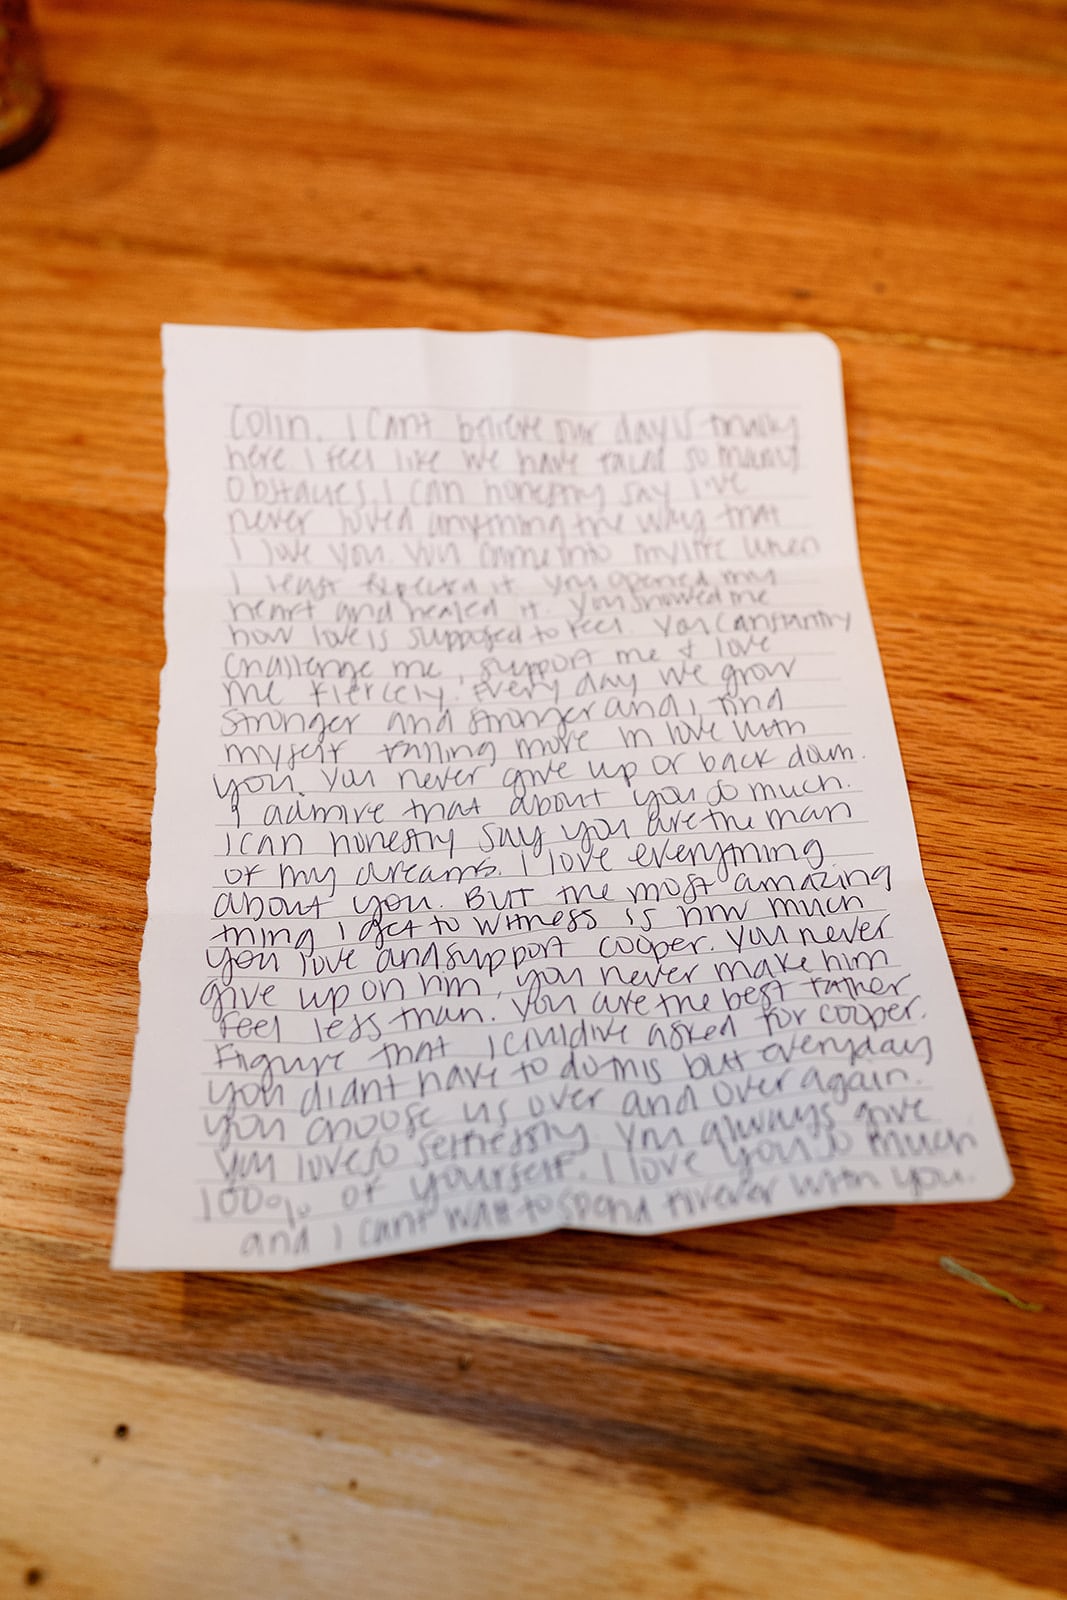 Colin, I can't believe our day is finally
here I feel like we have faced so many
obstacles. I can honestly say I've
never loved anything the way that
I love you. You came into my life when
I least expected it you opened my
heart and healed it. You showed me
how love is supposed to feel. You constantly
challenge me, support me & love
me fiercely. Every day we grow
stronger and stronger and i find
myself falling more in love with
you. You never give up or back down.
I admire that about you so much.
I can honestly say you are the man
of my dreams. I love everything
about you. But the most amazing
thing I get to witness is how much
you love and support cooper. You never
give up on him, you never make him
feel less than. You are the best father
Figure that I could've asked for cooper.
you didn't have to do this but everyday
you choose us over and over again.
You love so selflessly. You always give
100% of yourself. I love you so much
and I can't wait to spend forever with you.